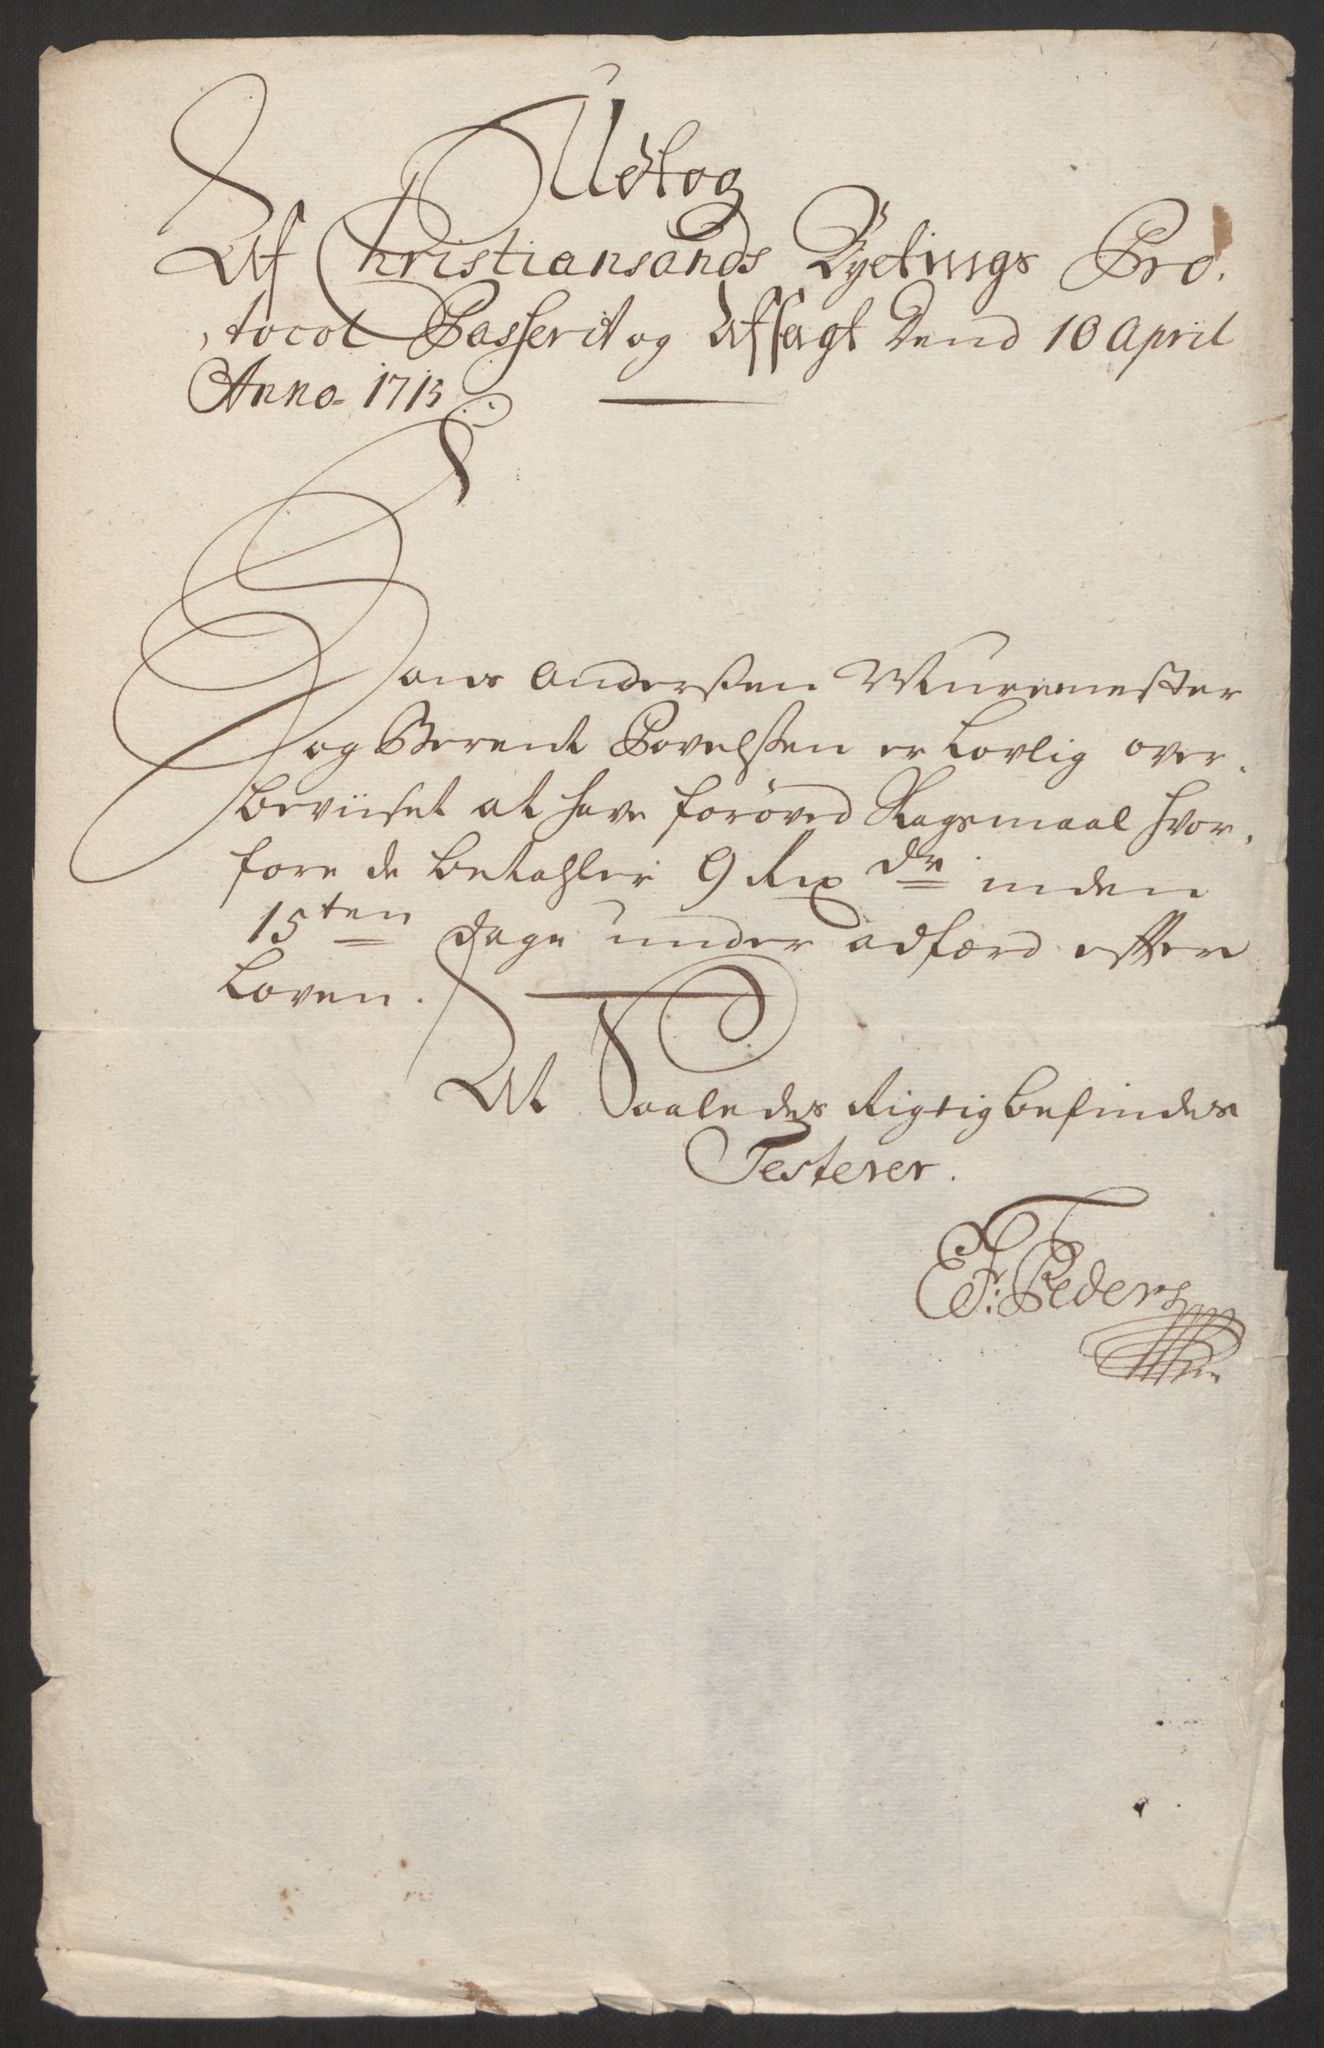 Udtog
Af Christiansands Byetings Pro,
,tocol Passerit og Afsagt Dend 10 April
Anno 1713
Hans Andersßen Muuremester
og Berent Povelsßen er Lovlig over,
beviiset at have forøved Slagsmaal hvor,
fore de betahler 9 Rix dr inden
15ten dage under adfærd efter
Loven.
At Saaledes Rigtig befindes
Testerer.
E Fr: Peders